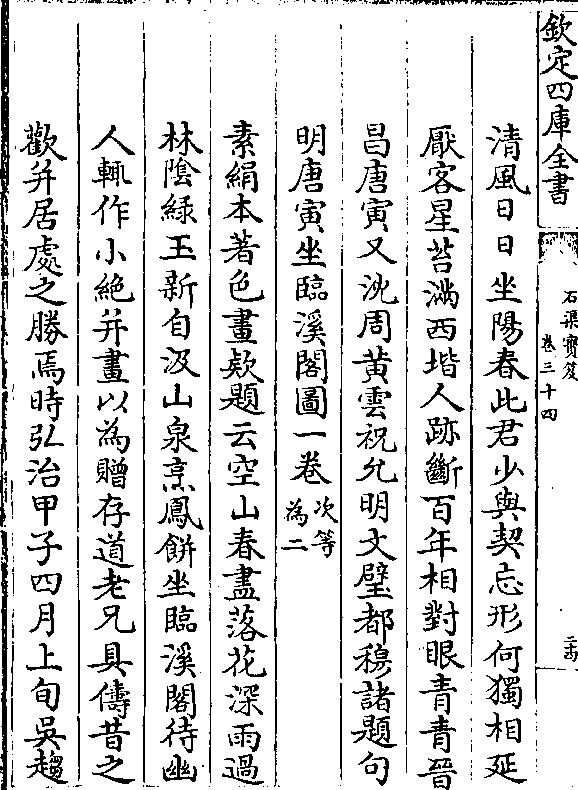 欽定四庫全書
石渠寳笈
卷三十四
二十四
清風日日坐陽春此君少與契忘形何獨相延
厭客星苔满西堦人跡斷百年相對眼青青晉
昌唐寅又沈周黄雲祝允明文璧都穆諸題句
明唐寅坐臨溪閣圖一卷次等為二
素絹本著色畫款題云空山春盡落花深雨過
林隂綠玉新自汲山泉烹鳳餅坐臨溪閣待幽
人輒作小絶并畫以為贈存道老兄具傳昔之
歡并居處之勝焉時弘治甲子四月上旬吳趨